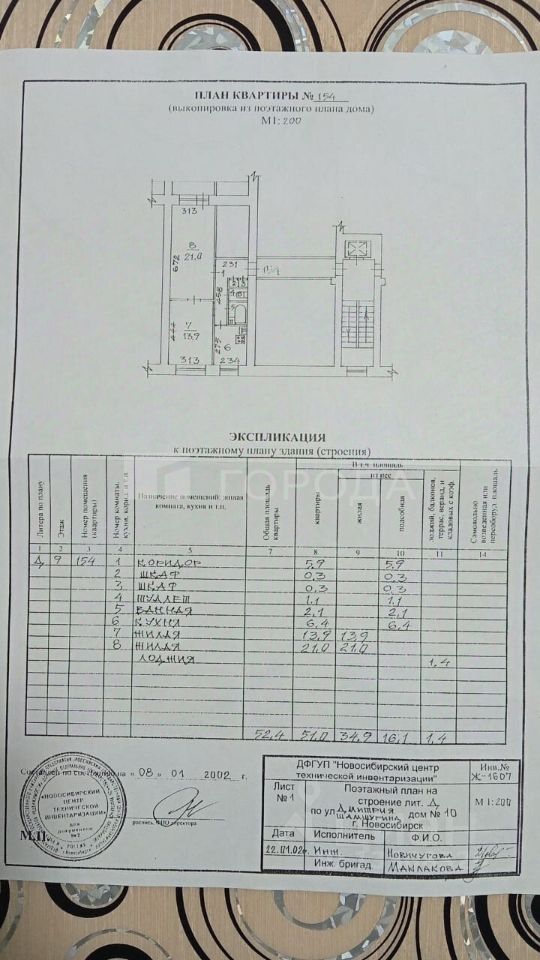 ПЛАН КВАРТИРЫ № 154
(выкопировка из поэтажного плана дома)
М1:200
313
8
21.0
672
231
1
458
7
13.9
444
275
6
313
234
ГОРОДА
ЭКСПЛИКАЦИЯ
к поэтажному плану здания (строения)
Литера по плану
Этаж
Номер помещения (квартиры)
Номер комнаты,
Назначение помещений: жилая комната, кухня и т.п.
Общая площадь квартиры
В т.ч. площадь
из нее
квартиры
жилая
подсобная
лоджий, балконов, террас, веранд и кладовых с коэф.
Самовольно возведенная или переоборуд. площадь
1 2 3 4 5 7 8 9 10 11 14
Д 9 154 1 КОРИДОР 5,9 5,9
2 ШКАФ 0,3 0,3
3 ШКАФ 0,3 0,3
4 ТУАЛЕТ 1,1 1,1
5 ВАННАЯ 2,1 2,1
6 КУХНЯ 6,4 6,4
7 ЖИЛАЯ 13,9 13,9
8 ЖИЛАЯ 21,0 21,0
ЛОДЖИЯ 1,4
52,4 51,0 34,9 16,1 1,4
"08" 01 2002 г.
М.П.
«НОВОСИБИРСКИЙ
ЦЕНТР
ТЕХНИЧЕСКОЙ
ИНВЕНТАРИЗАЦИИ»
для
документов
№2
ДФГУП "Новосибирский центр
технической инвентаризации"
Инв.№
Ж-1607
Лист
№1
Поэтажный план на
строение лит. Д
по ул Дмитрия
Шамшурина дом № 10
г. Новосибирск
М 1:200
Дата Исполнитель Ф.И.О.
22.01.02г Инж. Новичугова
Инж. бригад. Маклакова